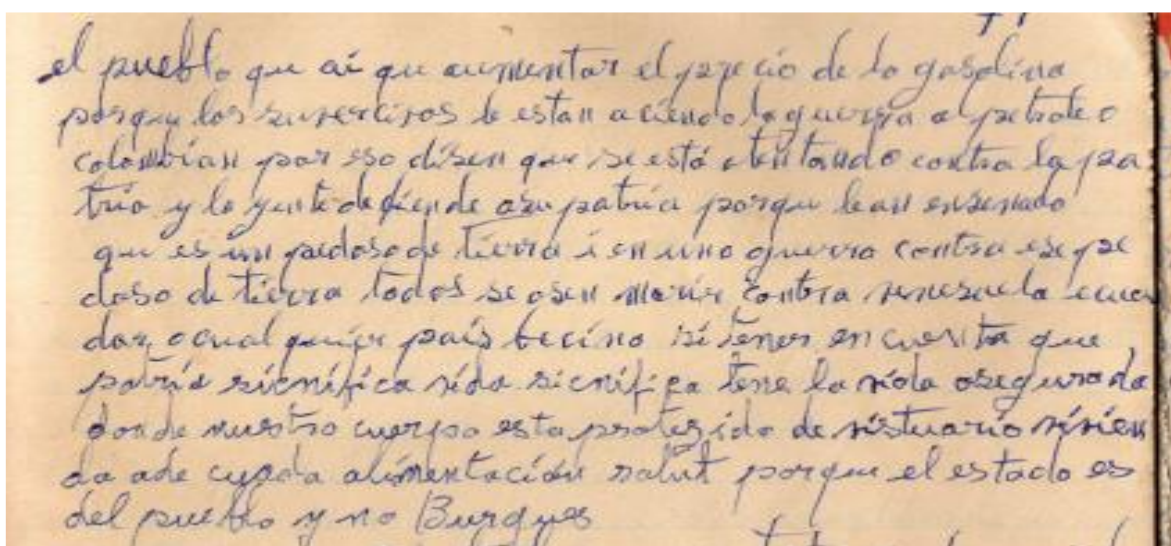 el pueblo que ai que aumentar el precio de la gasolina
porque los subercibos le estan aciendo la guerra a petroleo
colombian por eso disen que se está atentando contra la pa
tria y la gente defiende asu patria porque lean ensenado
que es un pedaso de tierra i en una guerra contra ese pe
daso de tierra todos se asen morir contra venesuela ecua
dor ocual quier país becino si tener en cuenta que
patria sicnifica vida sicnifica tene la vida asegurada
donde nuestro cuerpo esta protegido de vistuario vivien
da ade cuada alimentación salut porque el estado es
del pueblo y no Burgues